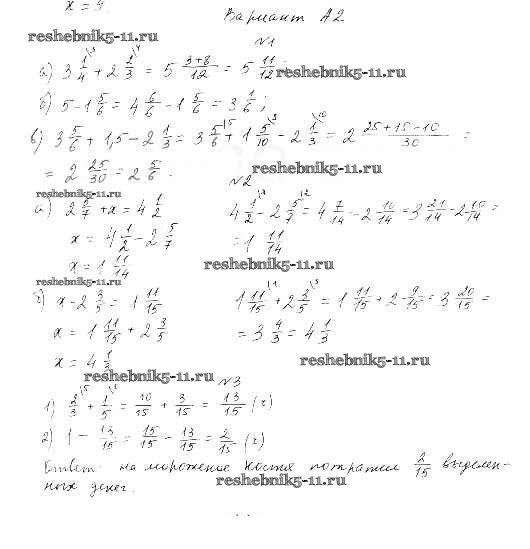 x = 9.
Вариант А2
reshebnik5-11.ru
№1
а) 3 1/4 + 2 2/3 = 5 (3+8)/12 = 5 11/12;
reshebnik5-11.ru
б) 5 - 1 5/6 = 4 6/6 - 1 5/6 = 3 1/6;
в) 3 5/6 + 1,5 - 2 1/3 = 3 5/6 + 1 5/10 - 2 1/3 = 2 (25+15-10)/30 =
= 2 25/30 = 2 5/6.
reshebnik5-11.ru
reshebnik5-11.ru
№2
а) 2 5/7 + x = 4 1/2
4 1/2 - 2 5/7 = 4 7/14 - 2 10/14 = 3 21/14 - 2 10/14 =
x = 4 1/2 - 2 5/7
= 1 11/14
x = 1 11/14
reshebnik5-11.ru
reshebnik5-11.ru
x - 2 3/5 = 1 11/15
1 11/15 + 2 3/5 = 1 11/15 + 2 9/15 = 3 20/15 =
x = 1 11/15 + 2 3/5
= 3 4/3 = 4 1/3
x = 4 1/3
reshebnik5-11.ru
reshebnik5-11.ru
№3
1) 2/3 + 1/5 = 10/15 + 3/15 = 13/15 (ч)
2) 1 - 13/15 = 15/15 - 13/15 = 2/15 (ч)
Ответ: на мороженое Костя потратил 2/15 выделен-
ных денег.
reshebnik5-11.ru